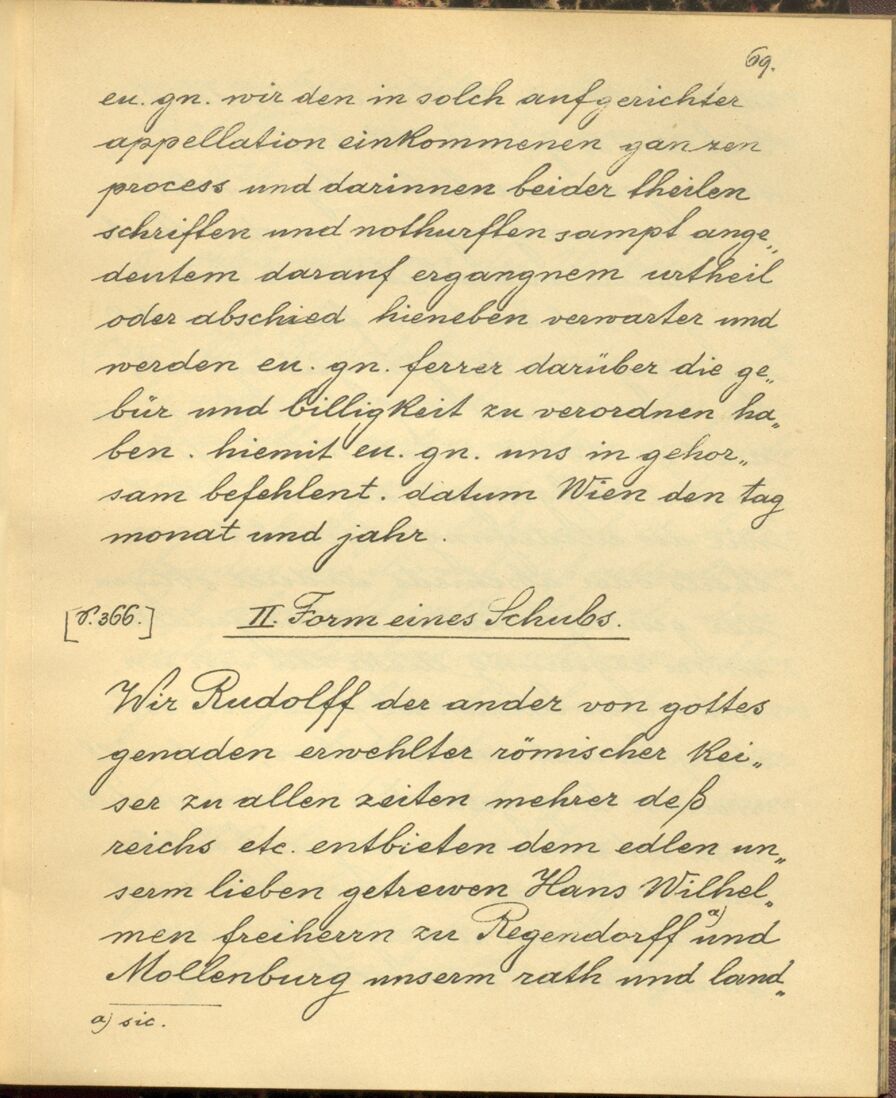 69.
eu. gn. wir den in solch aufgerichter
appellation einkommenen ganzen
process und darinnen beider theilen
schrifften und nothurfften sampt ange„
deutem darauf ergangnem urtheil
oder abschied hieneben verwarter und
werden eu. gn. ferrer darüber die ge„
bür und billigkeit zu verordnen ha„
ben. hiemit eu. gn. uns in gehor„
sam befehlent. datum Wien den tag
monat und jahr.
[S. 366.] II. Form eines Schubs.
Wir Rudolff der ander von gottes
genaden erwehlter römischer Kei„
ser zu allen zeiten mehrer deß
reichs etc. entbieten dem edlen un„
serm lieben getrewen Hans Wilhel„
men freiherrn zu Regendorff a) und
Mollenburg unserm rath und land„
a) sic.